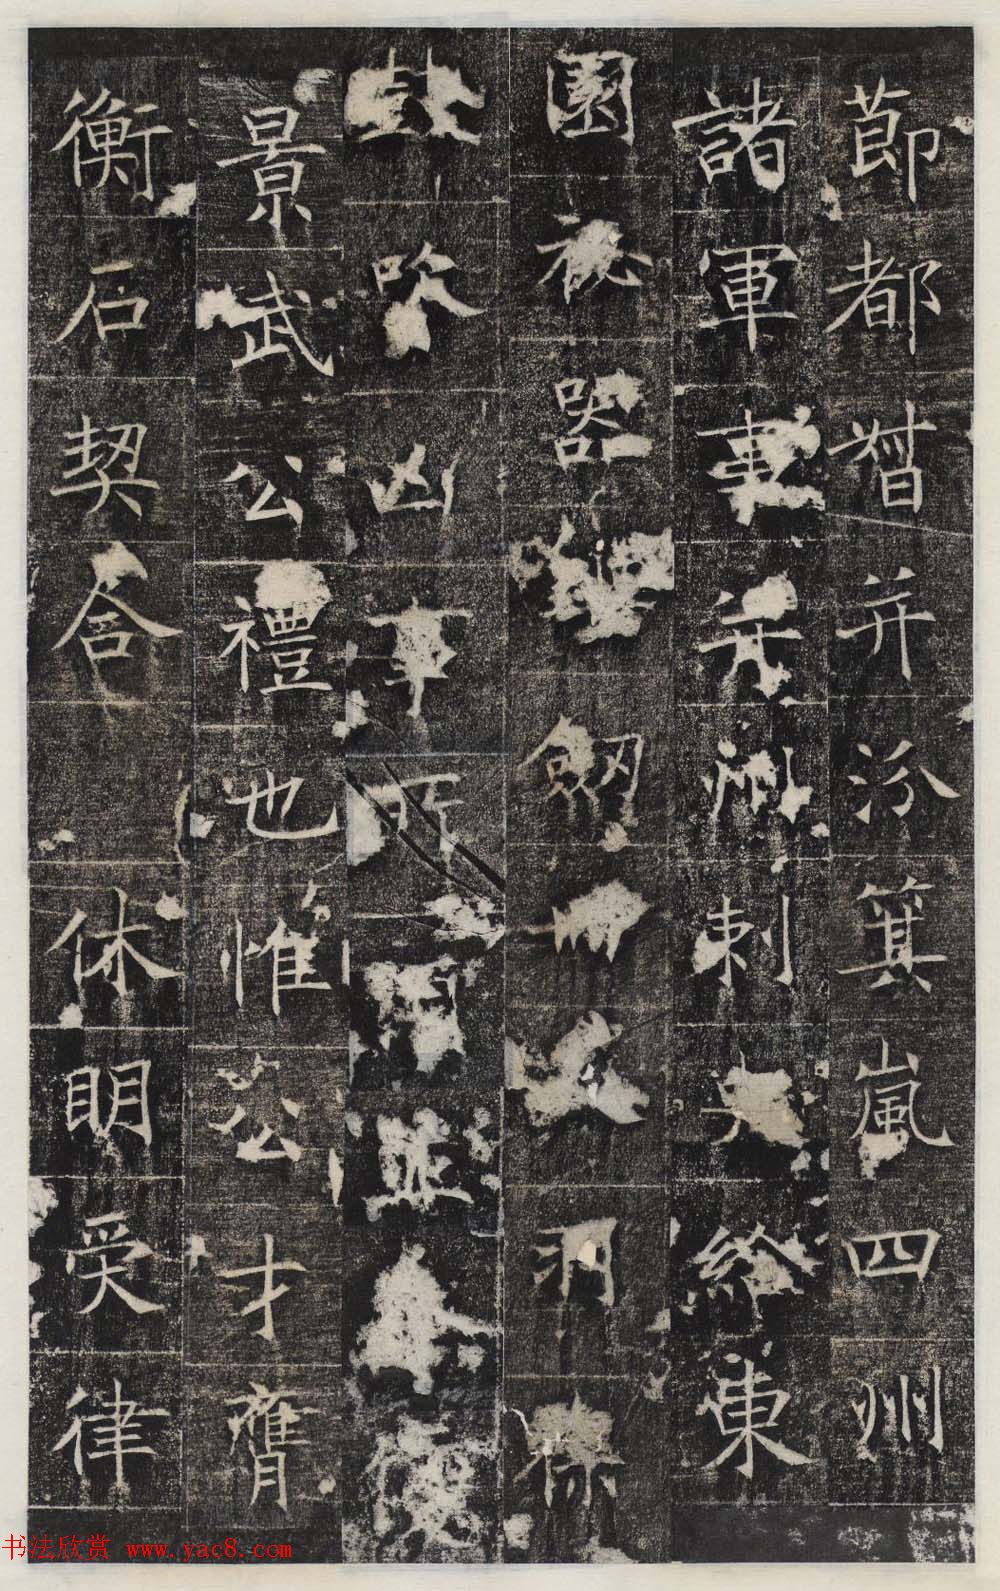 莭都督并汾箕嵐四州
諸軍事并州刺史給東
園秘器劒
鼓吹凶事所並
景武公禮也惟公才膺
衡石契合休明受律
书法欣赏 www.yac8.com